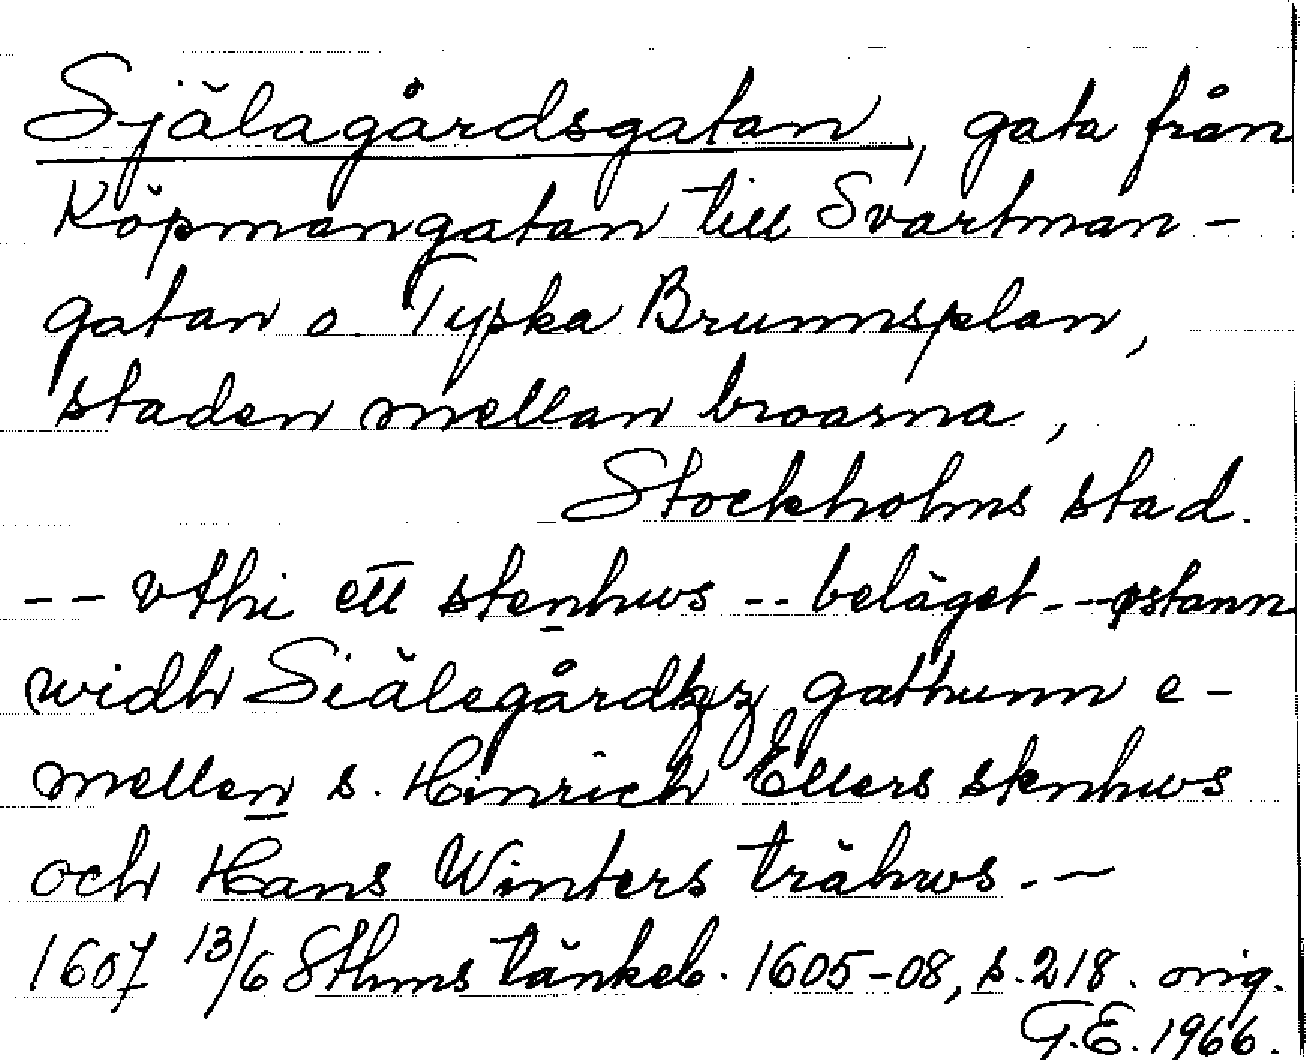 Själagårdsgatan, gata från
Köpmangatan till Svartman-
gatan o. Tyska Brunnsplan,
staden mellan broarna,
Stockholms stad.
-- vthi ett stenhws -- beläget -- østann
widh Siälegårdhzz gathunn e-
mellen s. Hinrich Ellers stenhws
och Hans Winters trähws. -
1607 13/6 Sthms tänkeb. 1605-08, s. 218. orig.
G.E. 1966.